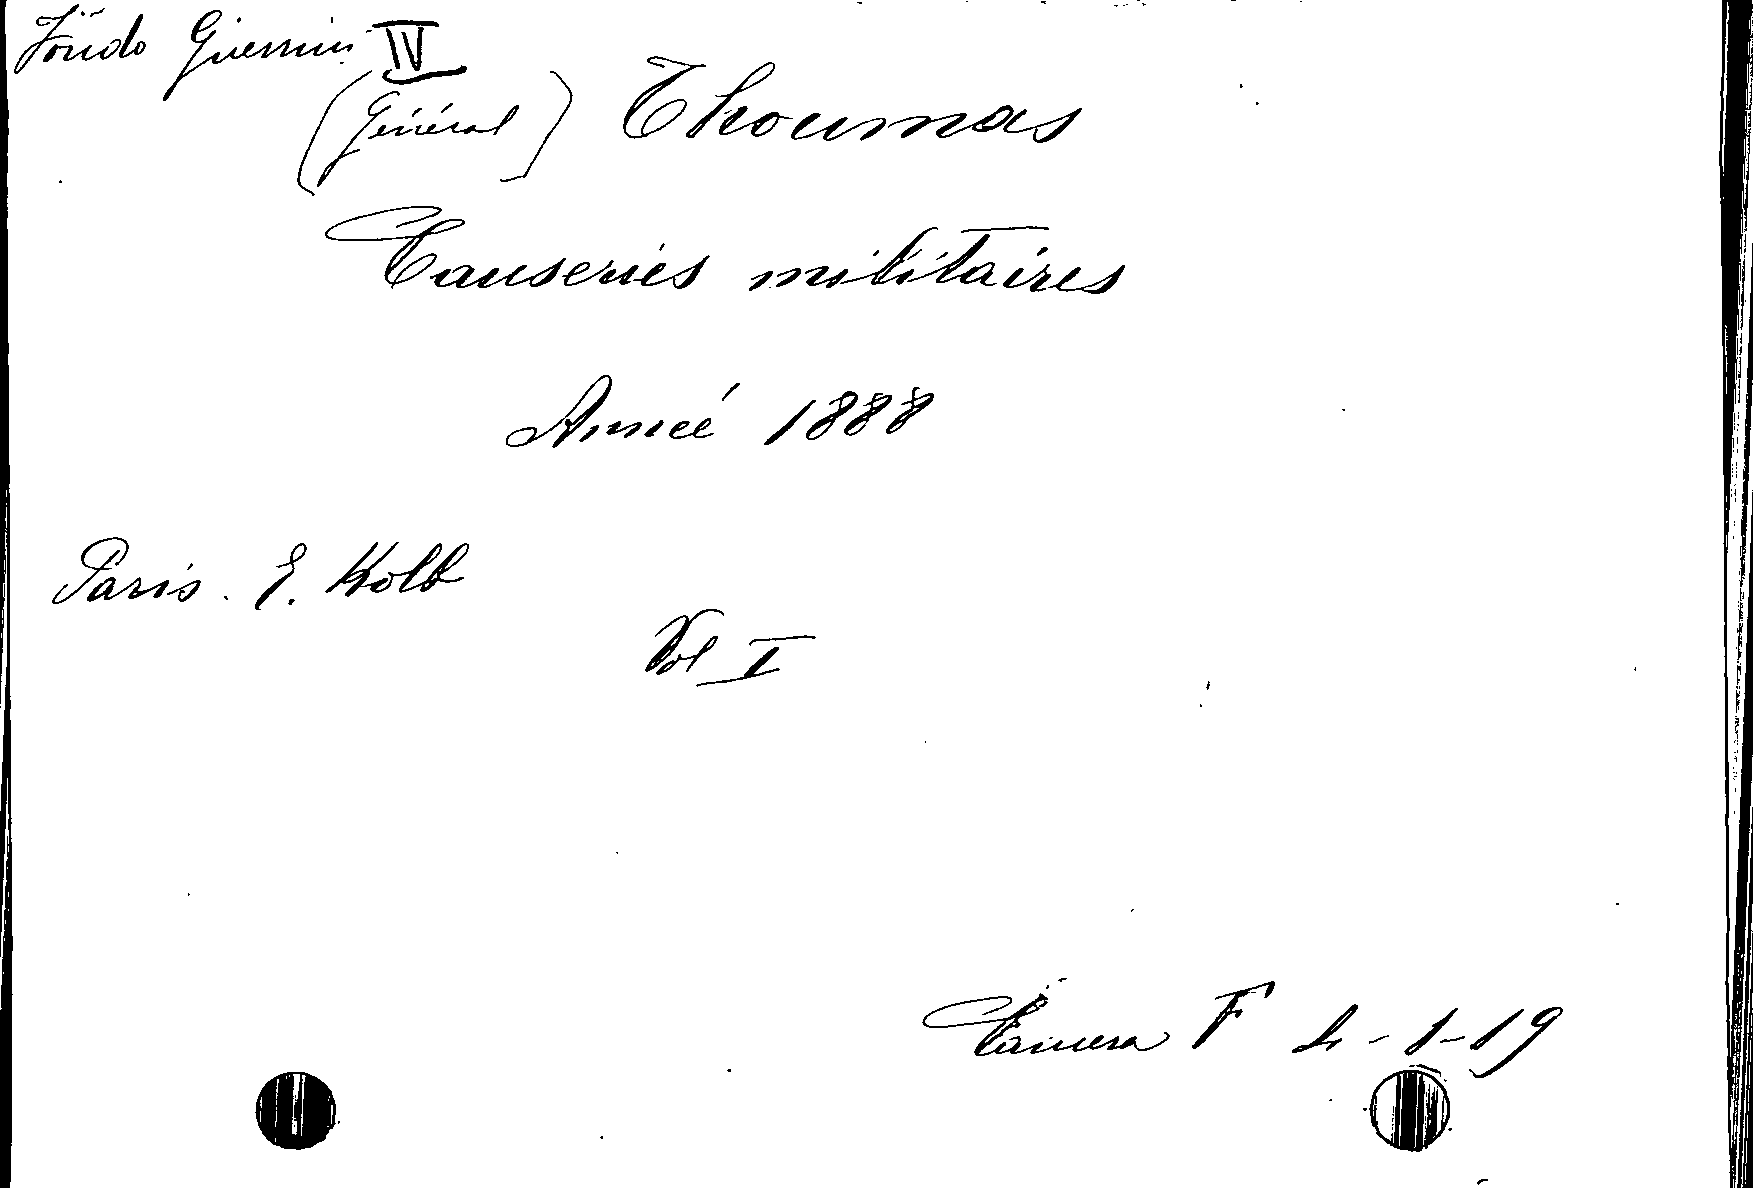 Fondo Guerrini IV
(Général) Thoumas
Causeries militaires
Année 1888
Paris. E. Kolb
Vol I
Camera F 4-1-19